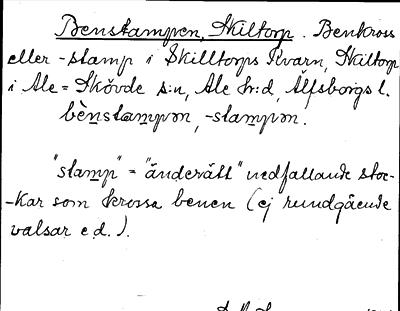 Benstampen, Skiltorp. Benkross
eller -stamp i Skilltorps Kvarn, Skiltorp
i Ale-Skövde s:n, Ale hr:d, Älfsborgs l.
bènstam̲pən, -stam̲pən.
"stam̲p" = "änderätt" nedfallande stoc-
-kar som krossa benen (ej rundgående
valsar e.d.).